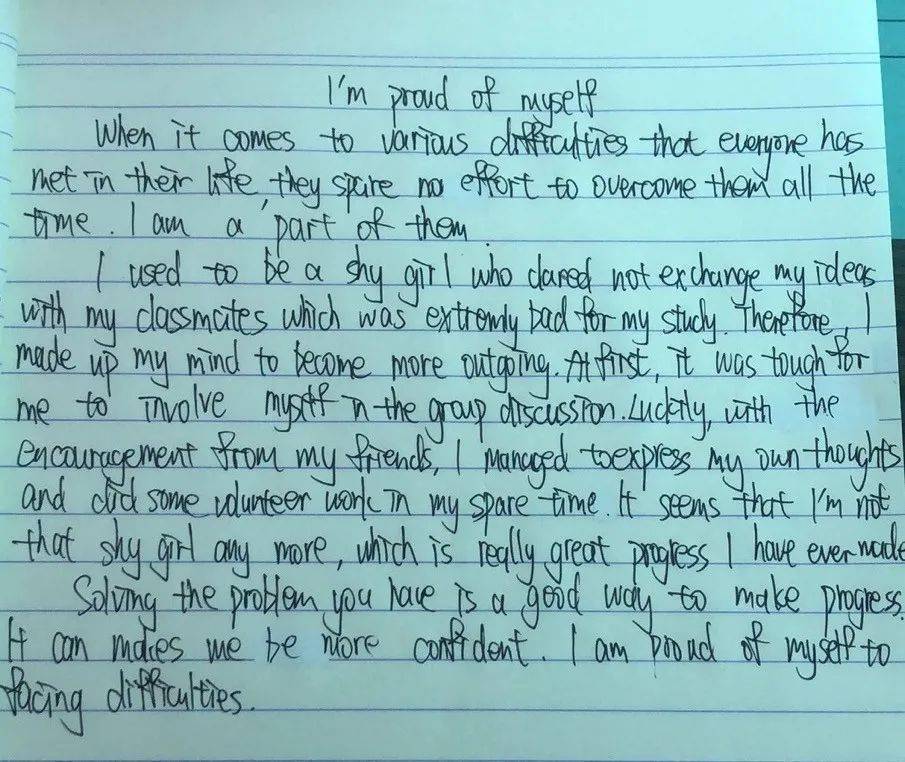 I'm proud of myself
When it comes to various difficulties that everyone has
met in their life, they spare no effort to overcome them all the
time. I am a part of them.
I used to be a shy girl who dared not exchange my ideas
with my classmates which was extremly bad for my study. Therefore, I
made up my mind to become more outgoing. At first, it was tough for
me to involve myself in the group discussion. Luckily, with the
encouragement from my friends, I managed to express my own thoughts
and did some volunteer work in my spare time. It seems that I'm not
that shy girl any more, which is really great progress I have ever made
Solving the problem you have is a good way to make progress.
It can makes me be more confident. I am proud of myself to
facing difficulties.